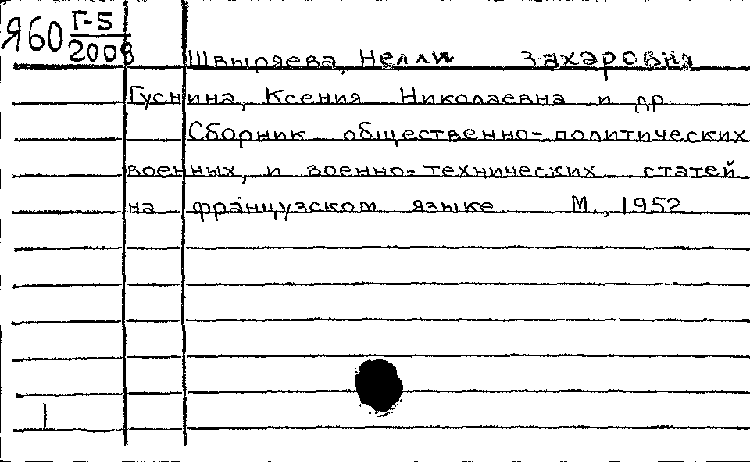 Я60 Г-5
2008
Швыряева, Нелли Захаровна
Гуснина, Ксения Николаевна и др
Сборник общественно-политических
военных, и военно-технических статей
на французском языке М., 1952